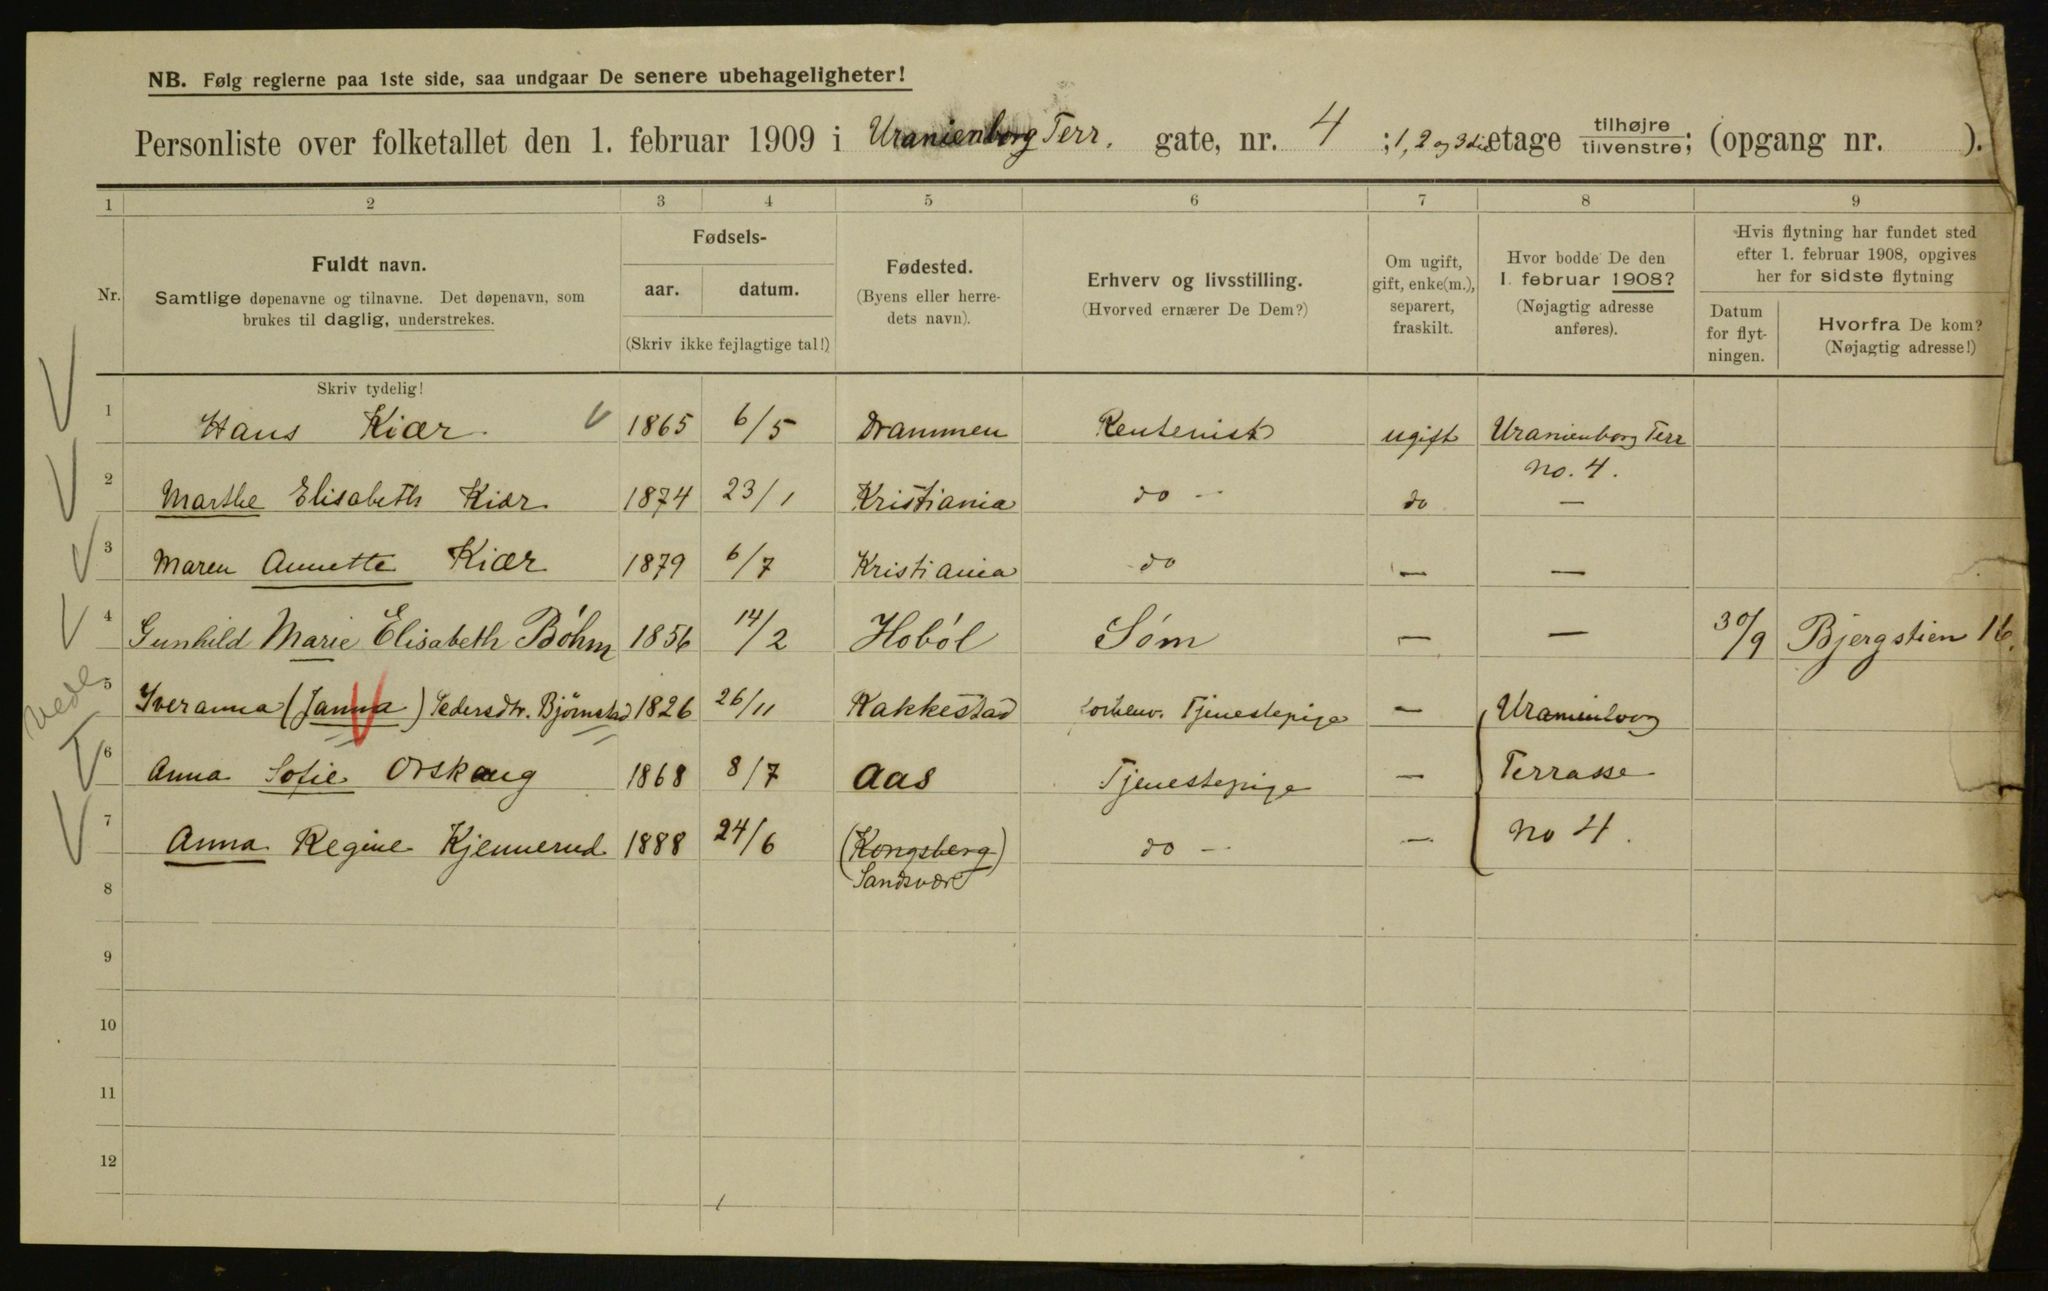 NB. Følg reglerne paa 1ste side, saa undgaar De senere ubehageligheter!
Personliste over folketallet den 1. februar 1909 i Uranienborg Terr. gate, nr. 4 ; 1, 2 og 3die etage tilhøjre tilvenstre; (opgang nr. ).
1 2 3 4 5 6 7 8 9
Nr.
Fuldt navn.
Samtlige døpenavne og tilnavne. Det døpenavn, som
brukes til daglig, understrekes.
Skriv tydelig!
Fødsels-
aar. datum.
(Skriv ikke fejlagtige tal!)
Fødested.
(Byens eller herre-
dets navn).
Erhverv og livsstilling.
(Hvorved ernærer De Dem?)
Om ugift,
gift, enke(m.),
separert,
fraskilt.
Hvor bodde De den
1. februar 1908?
(Nøjagtig adresse
anføres).
Hvis flytning har fundet sted
efter 1. februar 1908, opgives
her for sidste flytning
Datum
for flyt-
ningen.
Hvorfra De kom?
(Nøjagtig adresse!)
1 Hans Kiær 1865 6/5 Drammen Rentenist ugift Uranienborg Terr
No. 4.
2 Marthe Elisabeth Kiær 1874 23/1 Kristiania do - do —
3 Maren Annette Kiær 1879 6/7 Kristiania do — —
4 Gunhild Marie Elisabeth Bøhm 1856 14/2 Hobøl Søm — — 30/9 Bjergstien 16.
5 Iveranna (Janna) Pedersdtr. Bjørnstad 1826 26/11 Rakkestad forhenv. Tjenestepige — Uranienborg
6 Anna Sofie Orskaug 1868 8/7 Aas Tjenestepige — Terrasse
7 Anna Regine Kjennerud 1888 24/6 (Kongsberg) do - — No 4.
Sandsvær
8
9
10
11
12